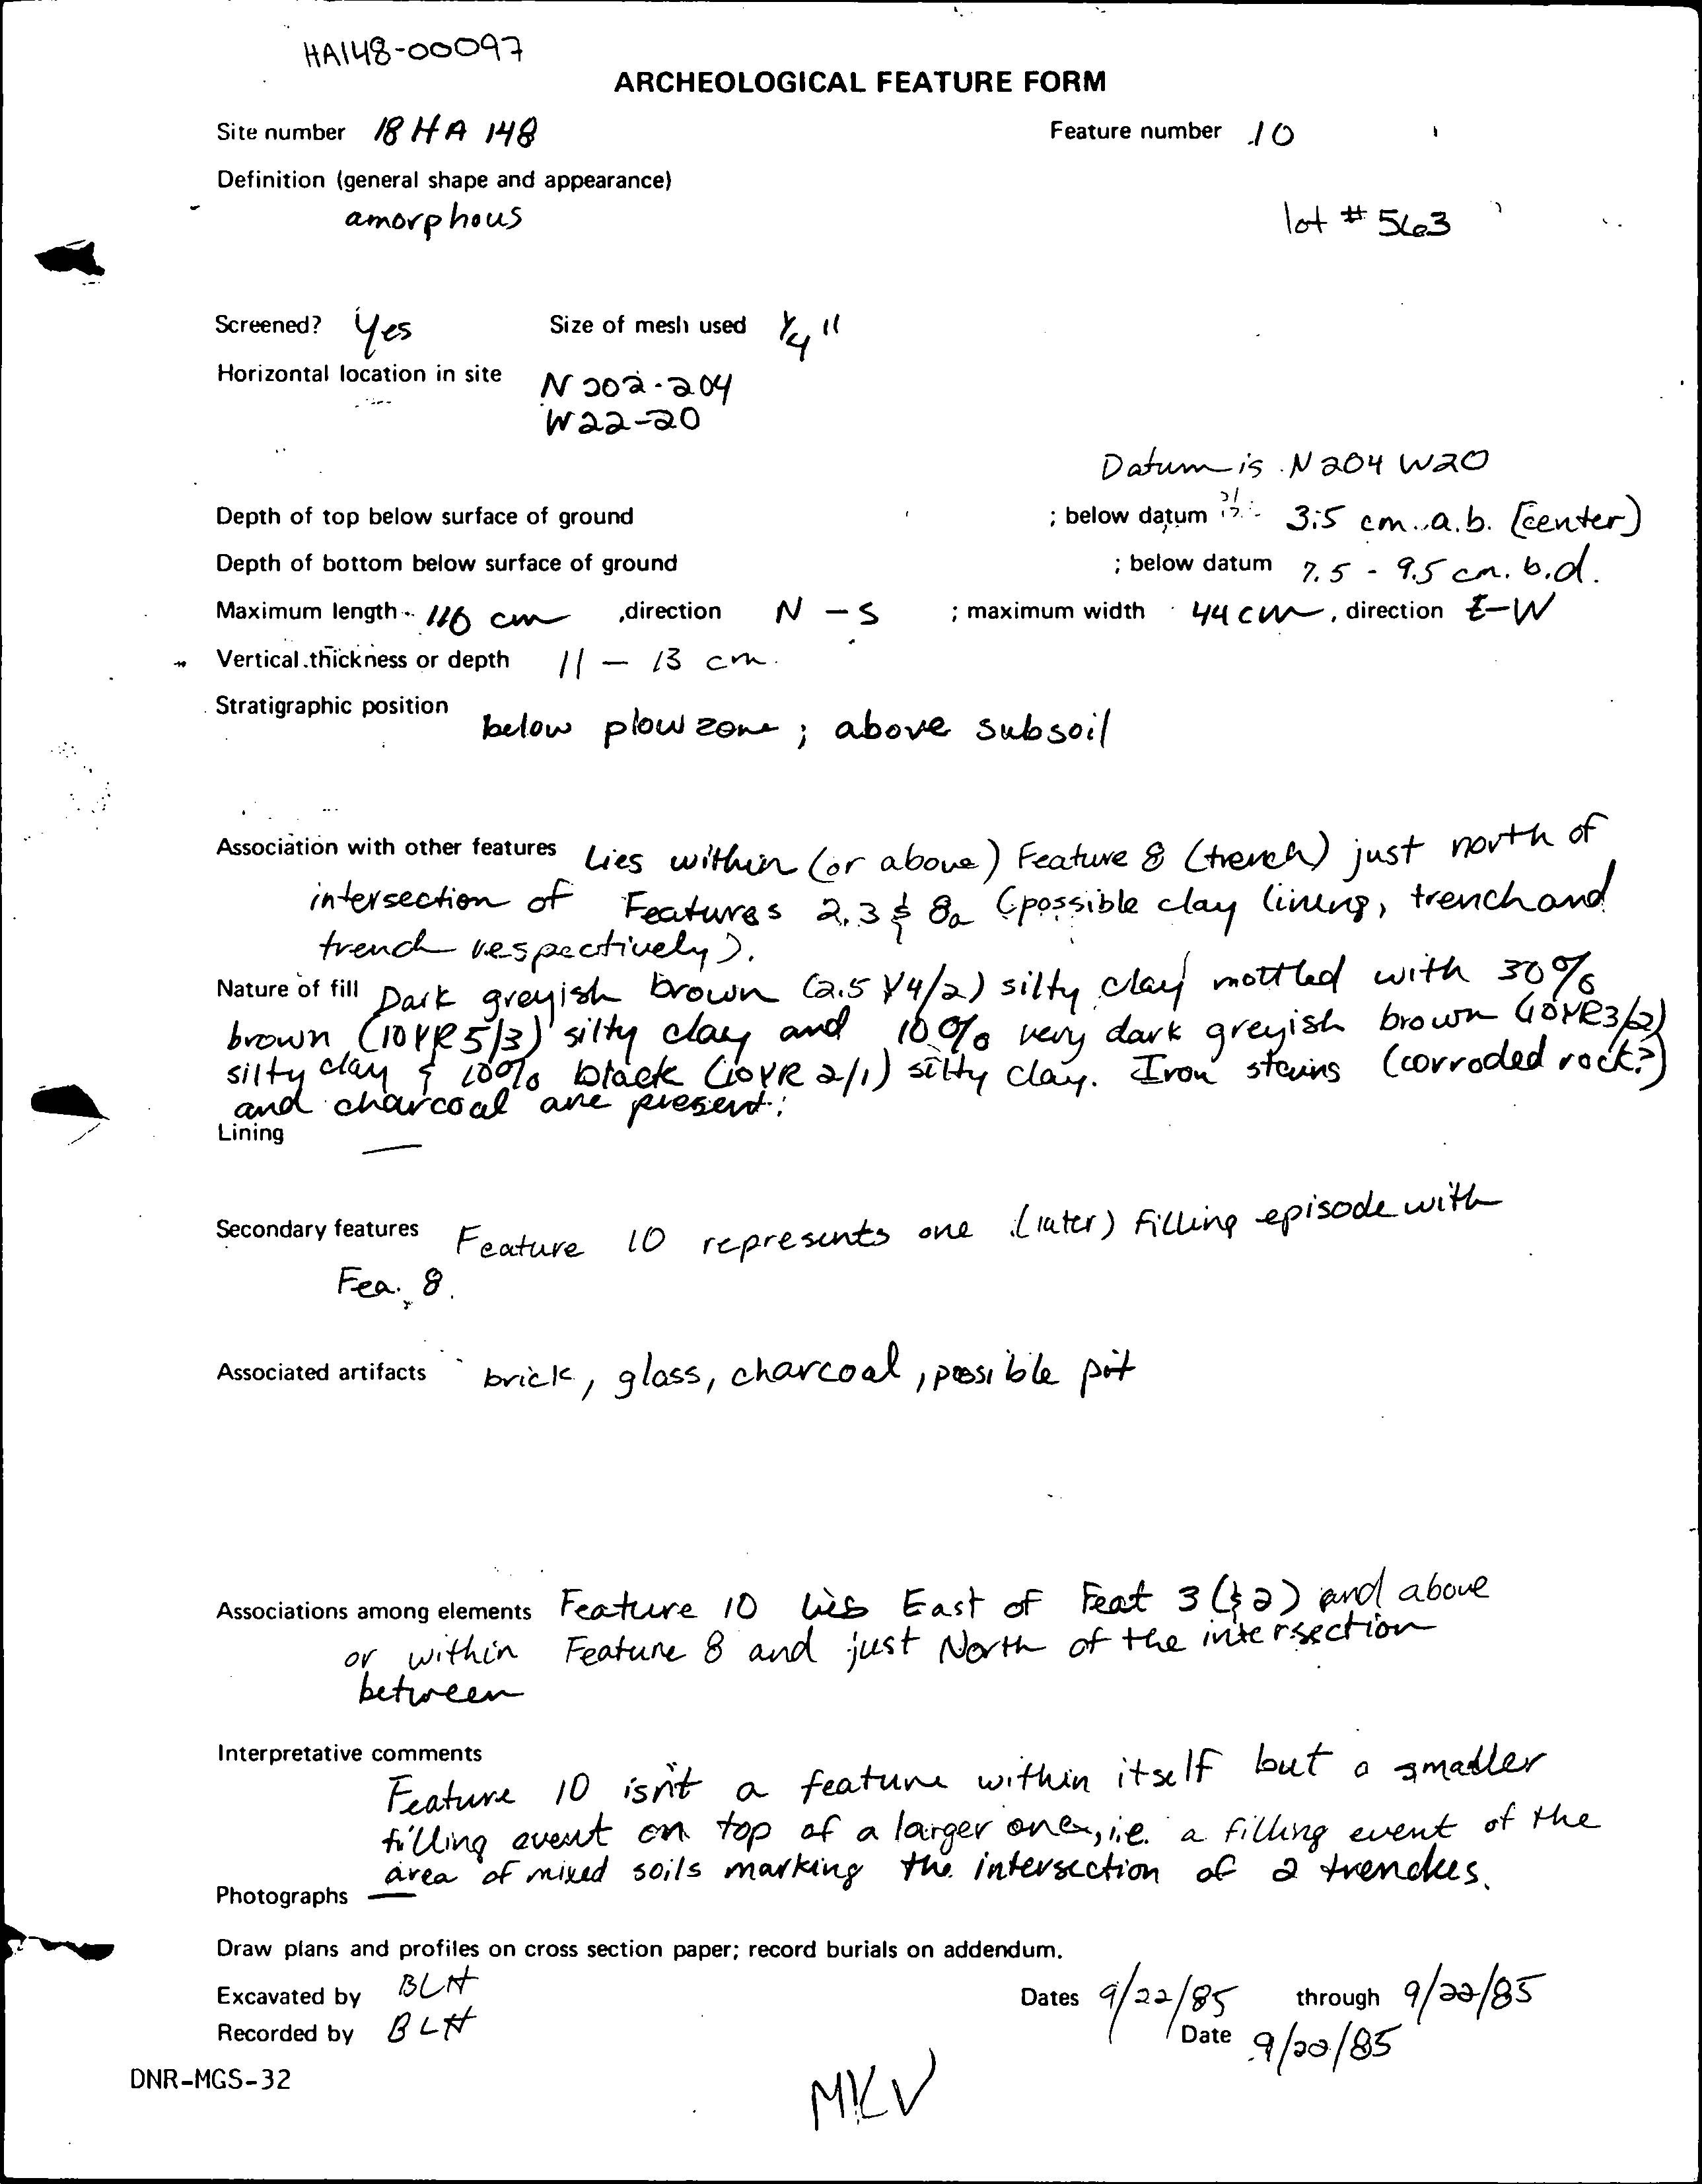 HA148-00097
ARCHEOLOGICAL FEATURE FORM
Site number 18 HA 148 Feature number 10
Definition (general shape and appearance)
amorphous lot # 563
Screened? Yes Size of mesh used 1/4"
Horizontal location in site N 202-204
W22-20
Datum is N204 W20
Depth of top below surface of ground ; below datum 3.5 cm. a.b. (center)
Depth of bottom below surface of ground ; below datum 7.5 - 9.5 cm. b.d.
Maximum length 116 cm ,direction N - S ; maximum width 44 cm , direction E-W
Vertical thickness or depth 11 - 13 cm.
Stratigraphic position below plow zone ; above subsoil
Association with other features Lies within (or above) Feature 8 (trench) just north of
intersection of Features 2, 3 & 8a (possible clay lining, trench and
trench respectively).
Nature of fill Dark greyish brown (2.5 Y4/2) silty clay mottled with 30%
brown (10YR 5/3) silty clay and 10% very dark greyish brown (10YR3/2)
silty clay & 10% black (10YR 2/1) silty clay. Iron stains (corroded rock?)
and charcoal are present.
Lining —
Secondary features Feature 10 represents one (later) filling episode with
Fea. 8.
Associated artifacts brick, glass, charcoal, possible pit
Associations among elements Feature 10 lies East of Feat 3 (& 2) and above
or within Feature 8 and just North of the intersection
between
Interpretative comments
Feature 10 isn't a feature within itself but a smaller
filling event on top of a larger one, i.e. a filling event of the
area of mixed soils marking the intersection of 2 trenches.
Photographs —
Draw plans and profiles on cross section paper; record burials on addendum.
Excavated by BLH Dates 9/22/85 through 9/22/85
Recorded by BLH Date 9/22/85
DNR-MGS-32
MKV